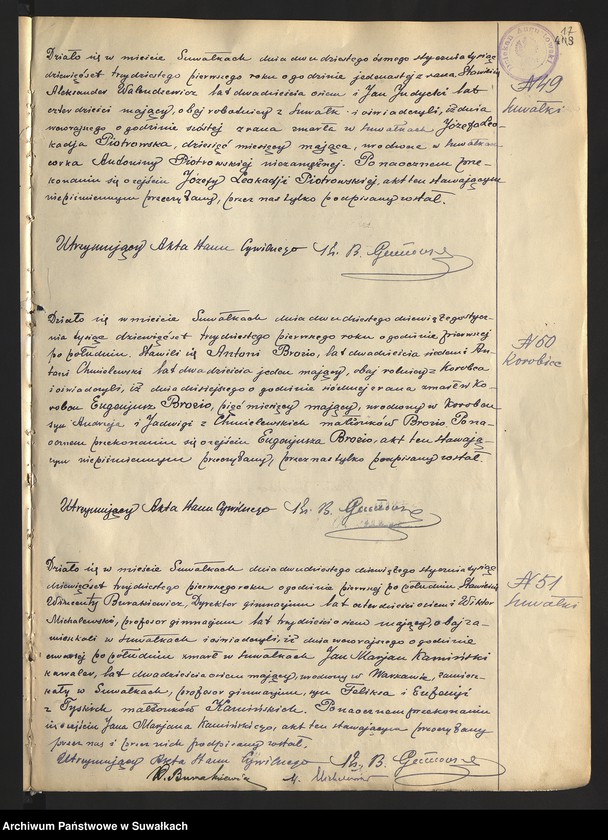 17
448
№ 49
Suwałki
Działo się w mieście Suwałkach dnia dwudziestego ósmego stycznia tysiąc
dziewięćset trzydziestego pierwszego roku o godzinie jedenastej z rana. Stawili się
Aleksander Walendzewicz lat dwadzieścia osiem i Jan Judycki lat
czterdzieści mający, obaj robotnicy z Suwałk i oświadczyli, iż dnia
wczorajszego o godzinie szóstej z rana zmarła w Suwałkach Józefa Leo-
kadja Piotrowska, dziesięć miesięcy mająca, urodzona w Suwałkach
córka Antoniny Piotrowskiej niezamężnej. Po naocznem prze-
konaniu się o zejściu Józefy Leokadji Piotrowskiej, akt ten stawającym
niepiśmiennym przeczytany, przez nas tylko podpisany został.
Utrzymujący Akta Stanu Cywilnego Ks. B.
№ 50
Korobiec
Działo się w mieście Suwałkach dnia dwudziestego dziewiątego stycz-
nia tysiąc dziewięćset trzydziestego pierwszego roku o godzinie pierwszej
po południu. Stawili się Antoni Brozio, lat dwadzieścia siedem i An-
toni Chmielewski lat dwadzieścia jeden mający, obaj rolnicy z Korobca
i oświadczyli, iż dnia dzisiejszego o godzinie siódmej z rana zmarł w Ko-
robcu Eugenjusz Brozio, pięć miesięcy mający, urodzony w Korobcu
syn Andrzeja i Jadwigi z Chmielewskich małżonków Brozio. Po na-
ocznem przekonaniu się o zejściu Eugenjusza Brozio, akt ten stawają-
cym niepiśmiennym przeczytany, przez nas tylko podpisany został.
Utrzymujący Akta Stanu Cywilnego Ks. B.
№ 51
Suwałki
Działo się w mieście Suwałkach dnia dwudziestego dziewiątego stycznia tysiąc
dziewięćset trzydziestego pierwszego roku o godzinie pierwszej po południu. Stawili się
Wincenty Burakiewicz, Dyrektor gimnazjum lat czterdzieści osiem i Wiktor
Michalewski, profesor gimnazjum lat trzydzieści osiem mający, obaj za-
mieszkali w Suwałkach i oświadczyli, iż dnia wczorajszego o godzinie
czwartej po południu zmarł w Suwałkach Jan Marjan Kamiński
kawaler, lat dwadzieścia osiem mający, urodzony w Warszawie, zamiesz-
kały w Suwałkach, profesor gimnazjum, syn Feliksa i Eufemji
z Tyskich małżonków Kamińskich. Po naocznem przekonaniu
się o zejściu Jana Marjana Kamińskiego, akt ten stawającym przeczytany
przez nas i przez nich podpisany został.
Utrzymujący Akta Stanu Cywilnego Ks. B.
W. Burakiewicz
Archiwum Państwowe w Suwałkach